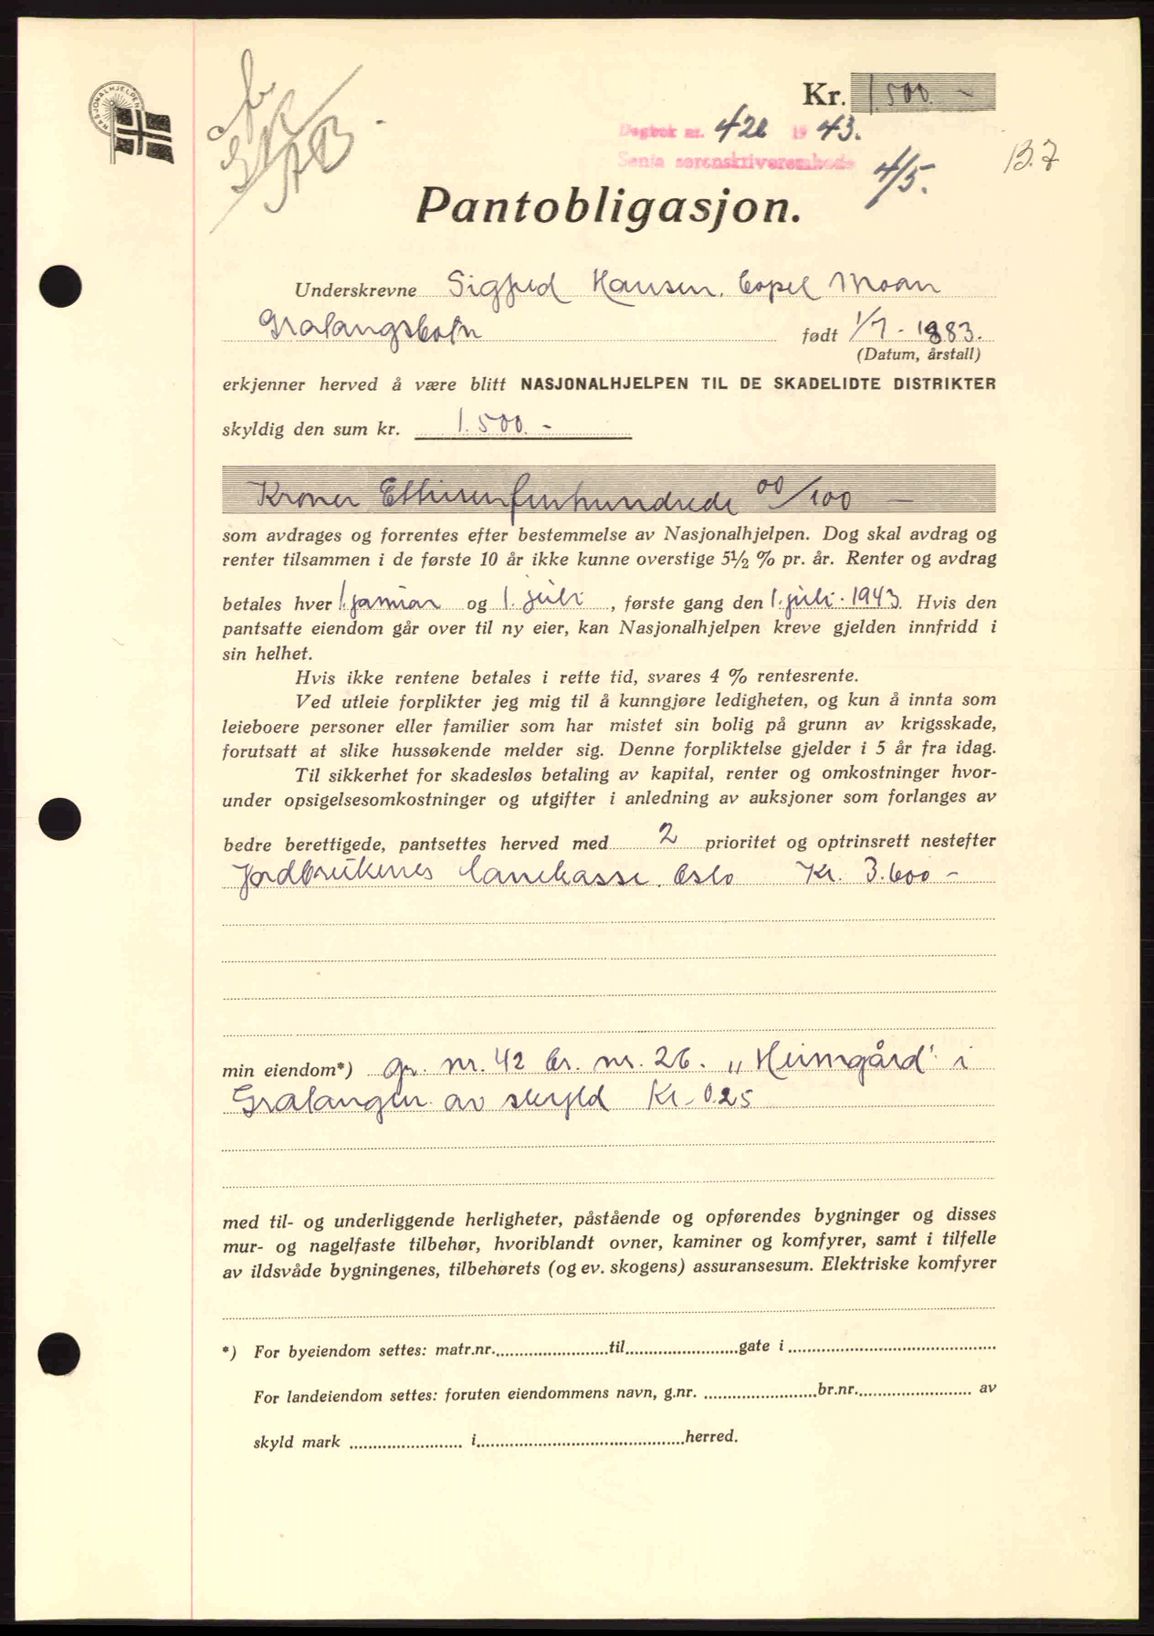 NASJONALHJELPEN
Kr. 1.500.-
Dagbok nr. 421 1943.
Senja sorenskriverembede 4/5.
137
Pantobligasjon.
Underskrevne Sigfred Hansen, Copel Moan
Gratangsbotn født 1/7 - 1883.
(Datum, årstall)
erkjenner herved å være blitt NASJONALHJELPEN TIL DE SKADELIDTE DISTRIKTER
skyldig den sum kr. 1.500.-
Kroner Ettusenfemhundrede 00/100 —
som avdrages og forrentes efter bestemmelse av Nasjonalhjelpen. Dog skal avdrag og
renter tilsammen i de første 10 år ikke kunne overstige 5½ % pr. år. Renter og avdrag
betales hver 1. januar og 1. juli, første gang den 1. juli. 1943. Hvis den
pantsatte eiendom går over til ny eier, kan Nasjonalhjelpen kreve gjelden innfridd i
sin helhet.
Hvis ikke rentene betales i rette tid, svares 4 % rentesrente.
Ved utleie forplikter jeg mig til å kunngjøre ledigheten, og kun å innta som
leieboere personer eller familier som har mistet sin bolig på grunn av krigsskade,
forutsatt at slike hussøkende melder sig. Denne forpliktelse gjelder i 5 år fra idag.
Til sikkerhet for skadesløs betaling av kapital, renter og omkostninger hvor-
under opsigelsesomkostninger og utgifter i anledning av auksjoner som forlanges av
bedre berettigede, pantsettes herved med 2 prioritet og optrinsrett nestefter
Jordbrukernes lanekasse. Oslo Kr. 3.600 -
min eiendom*) gr. nr. 42 br. nr. 26. „Heimgård" i
Gratangen av skyld Kr. 0.25
med til- og underliggende herligheter, påstående og opførendes bygninger og disses
mur- og nagelfaste tilbehør, hvoriblandt ovner, kaminer og komfyrer, samt i tilfelle
av ildsvåde bygningenes, tilbehørets (og ev. skogens) assuransesum. Elektriske komfyrer
*) For byeiendom settes: matr.nr. til gate i
For landeiendom settes: foruten eiendommens navn, g.nr. br.nr. av
skyld mark i herred.